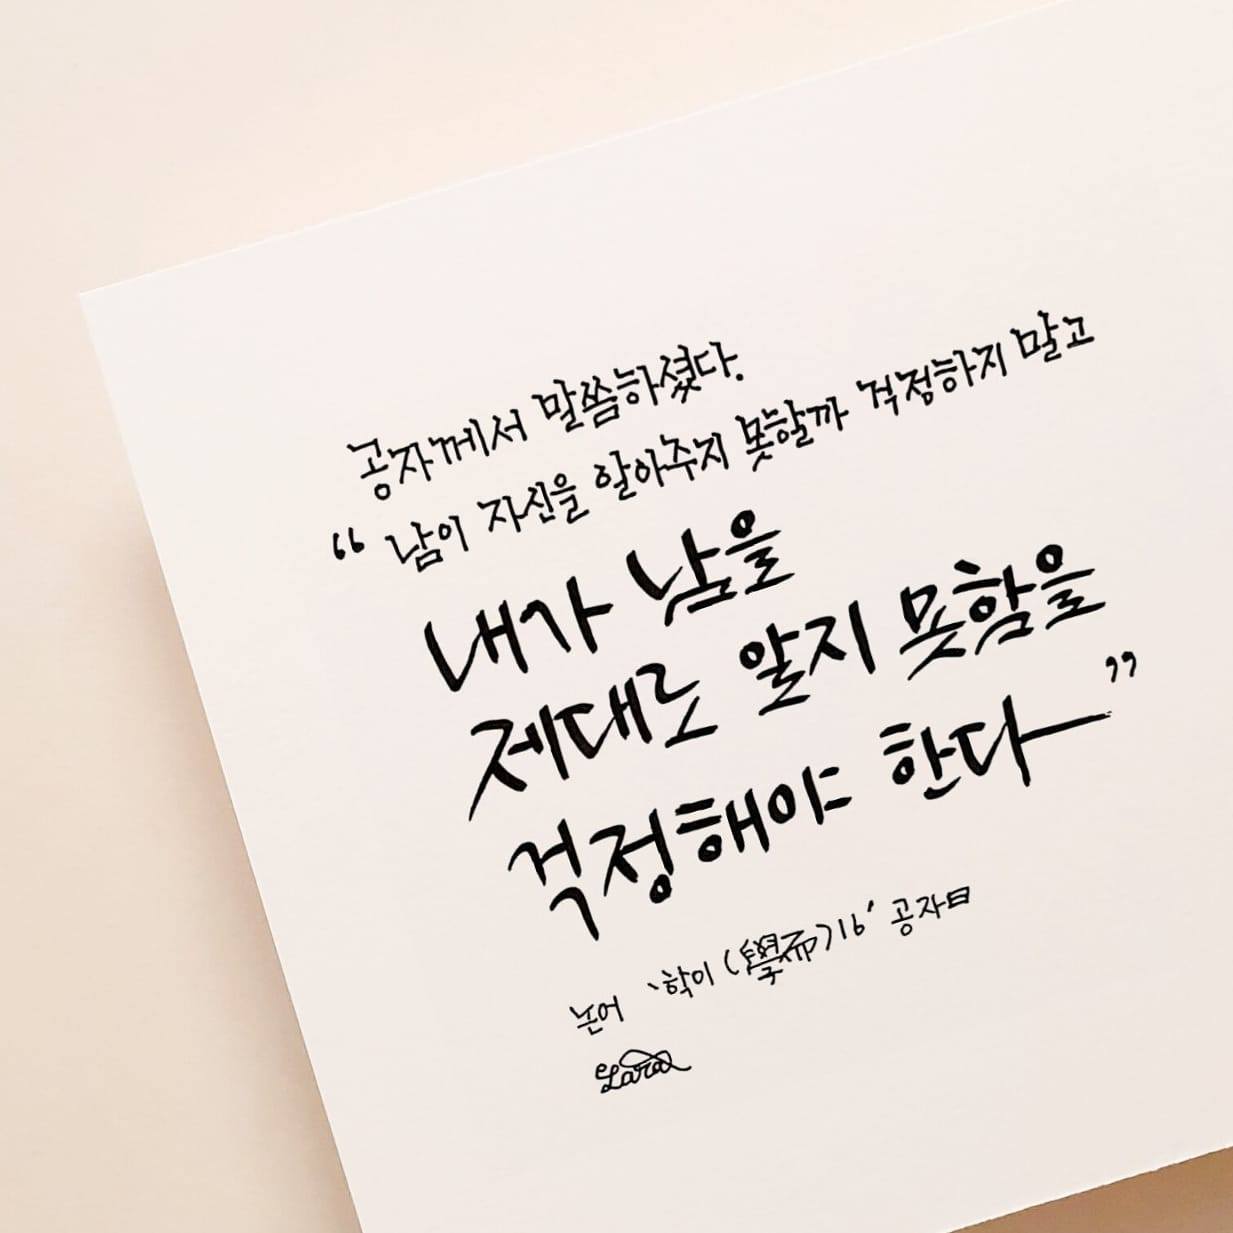 공자께서 말씀하셨다.
“ 남이 자신을 알아주지 못할까 걱정하지 말고
내가 남을
제대로 알지 못함을
걱정해야 한다 ”
논어 ‘학이(學而)16’ 공자曰
Lara